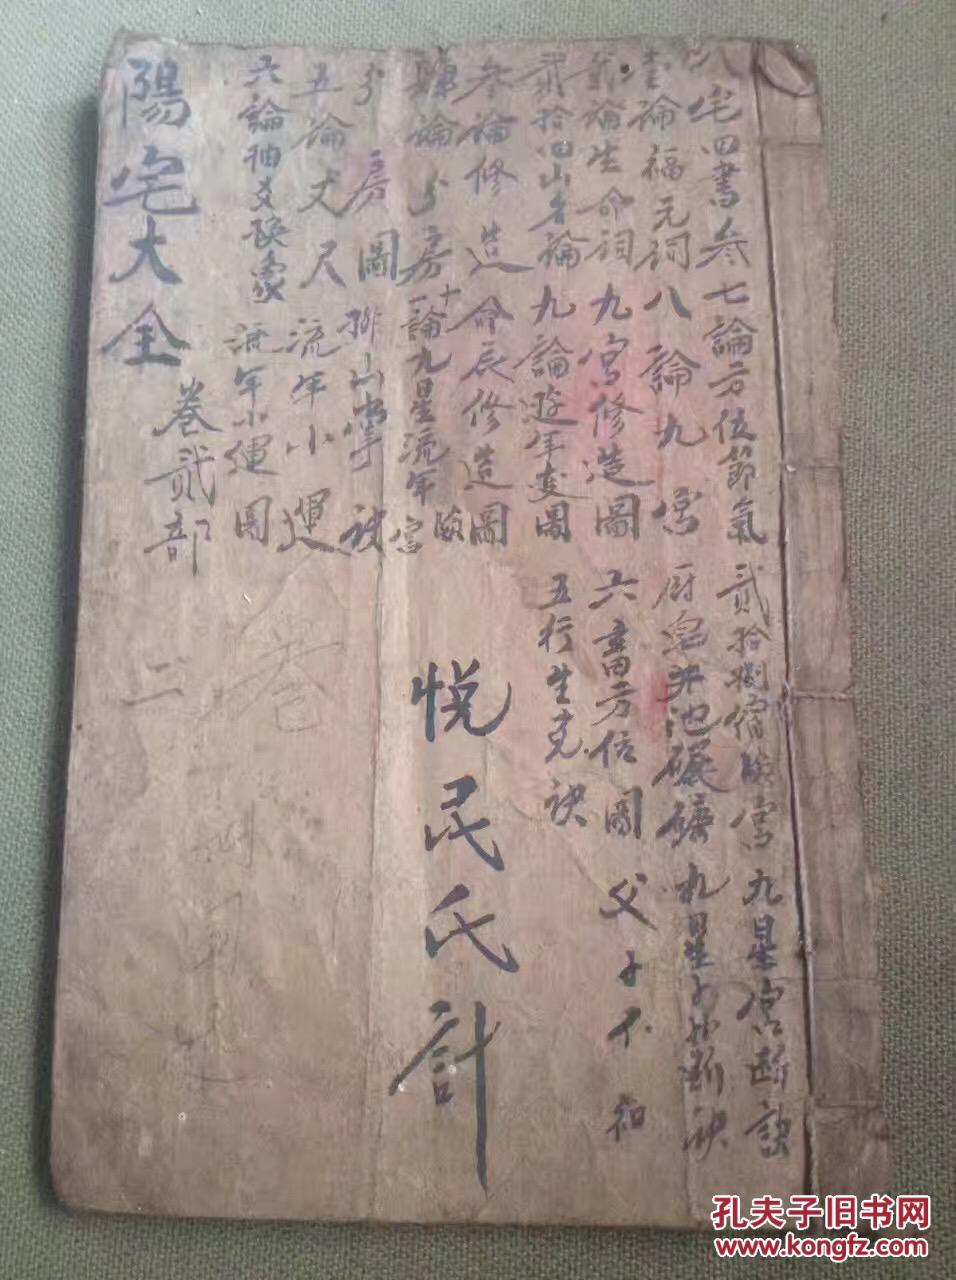 八宅四書叁
七論方位節氣
貳拾捌宿臉宮
九星宮断訣
壹論福元詞
八論九宮
厨皂井池碾磨
九星方位断訣
貳論生命詞
九宮修造圖
六畜方位圖
父子不和
貳拾四山方論
九論遊年变圖
五行生克訣
叁論修造
命辰修造圖
肆論分房
十一論九星流年
宮
分房圖
排山掌訣
五論丈尺
流年小運
六論抽爻換象
流年小運圖
悦民氏計
陽宅大全
卷貳部
卷
二
孔夫子旧书网
www.kongfz.com